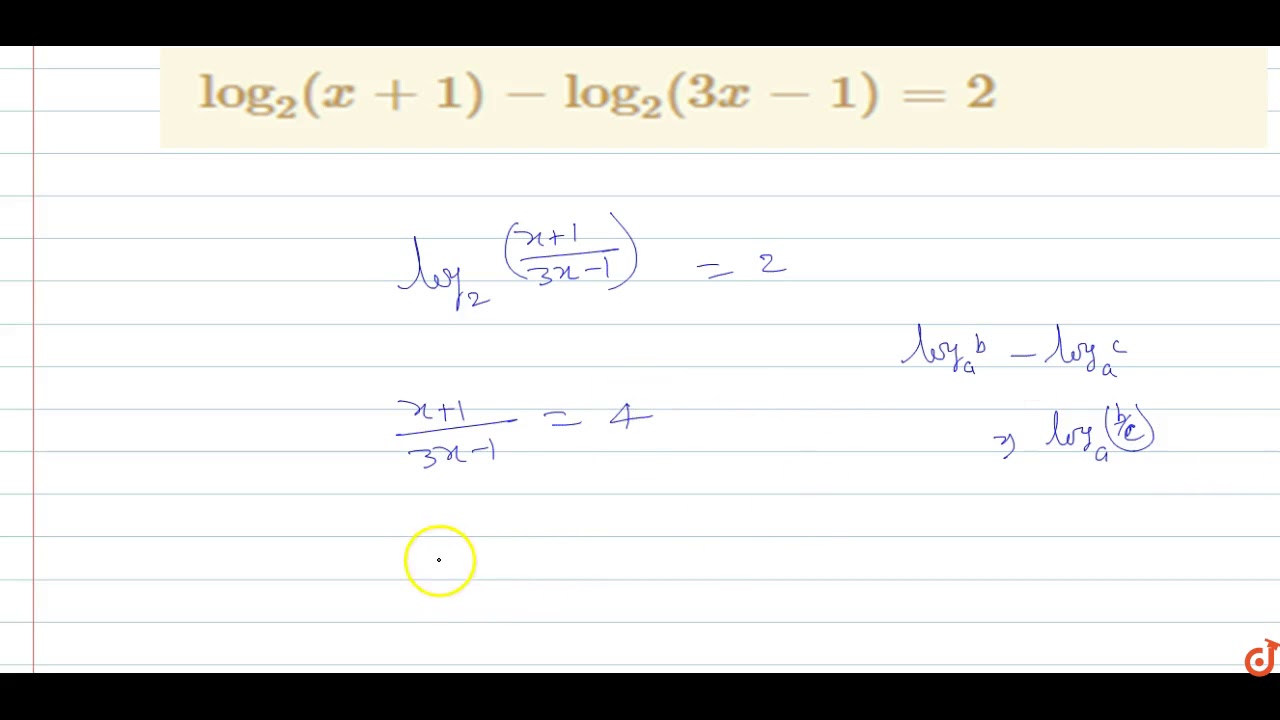 log₂(x + 1) − log₂(3x − 1) = 2
log₂ (x+1 / 3x−1) = 2
logₐ b − logₐ c
x+1 / 3x−1 = 4
⇒ logₐ (b/c)